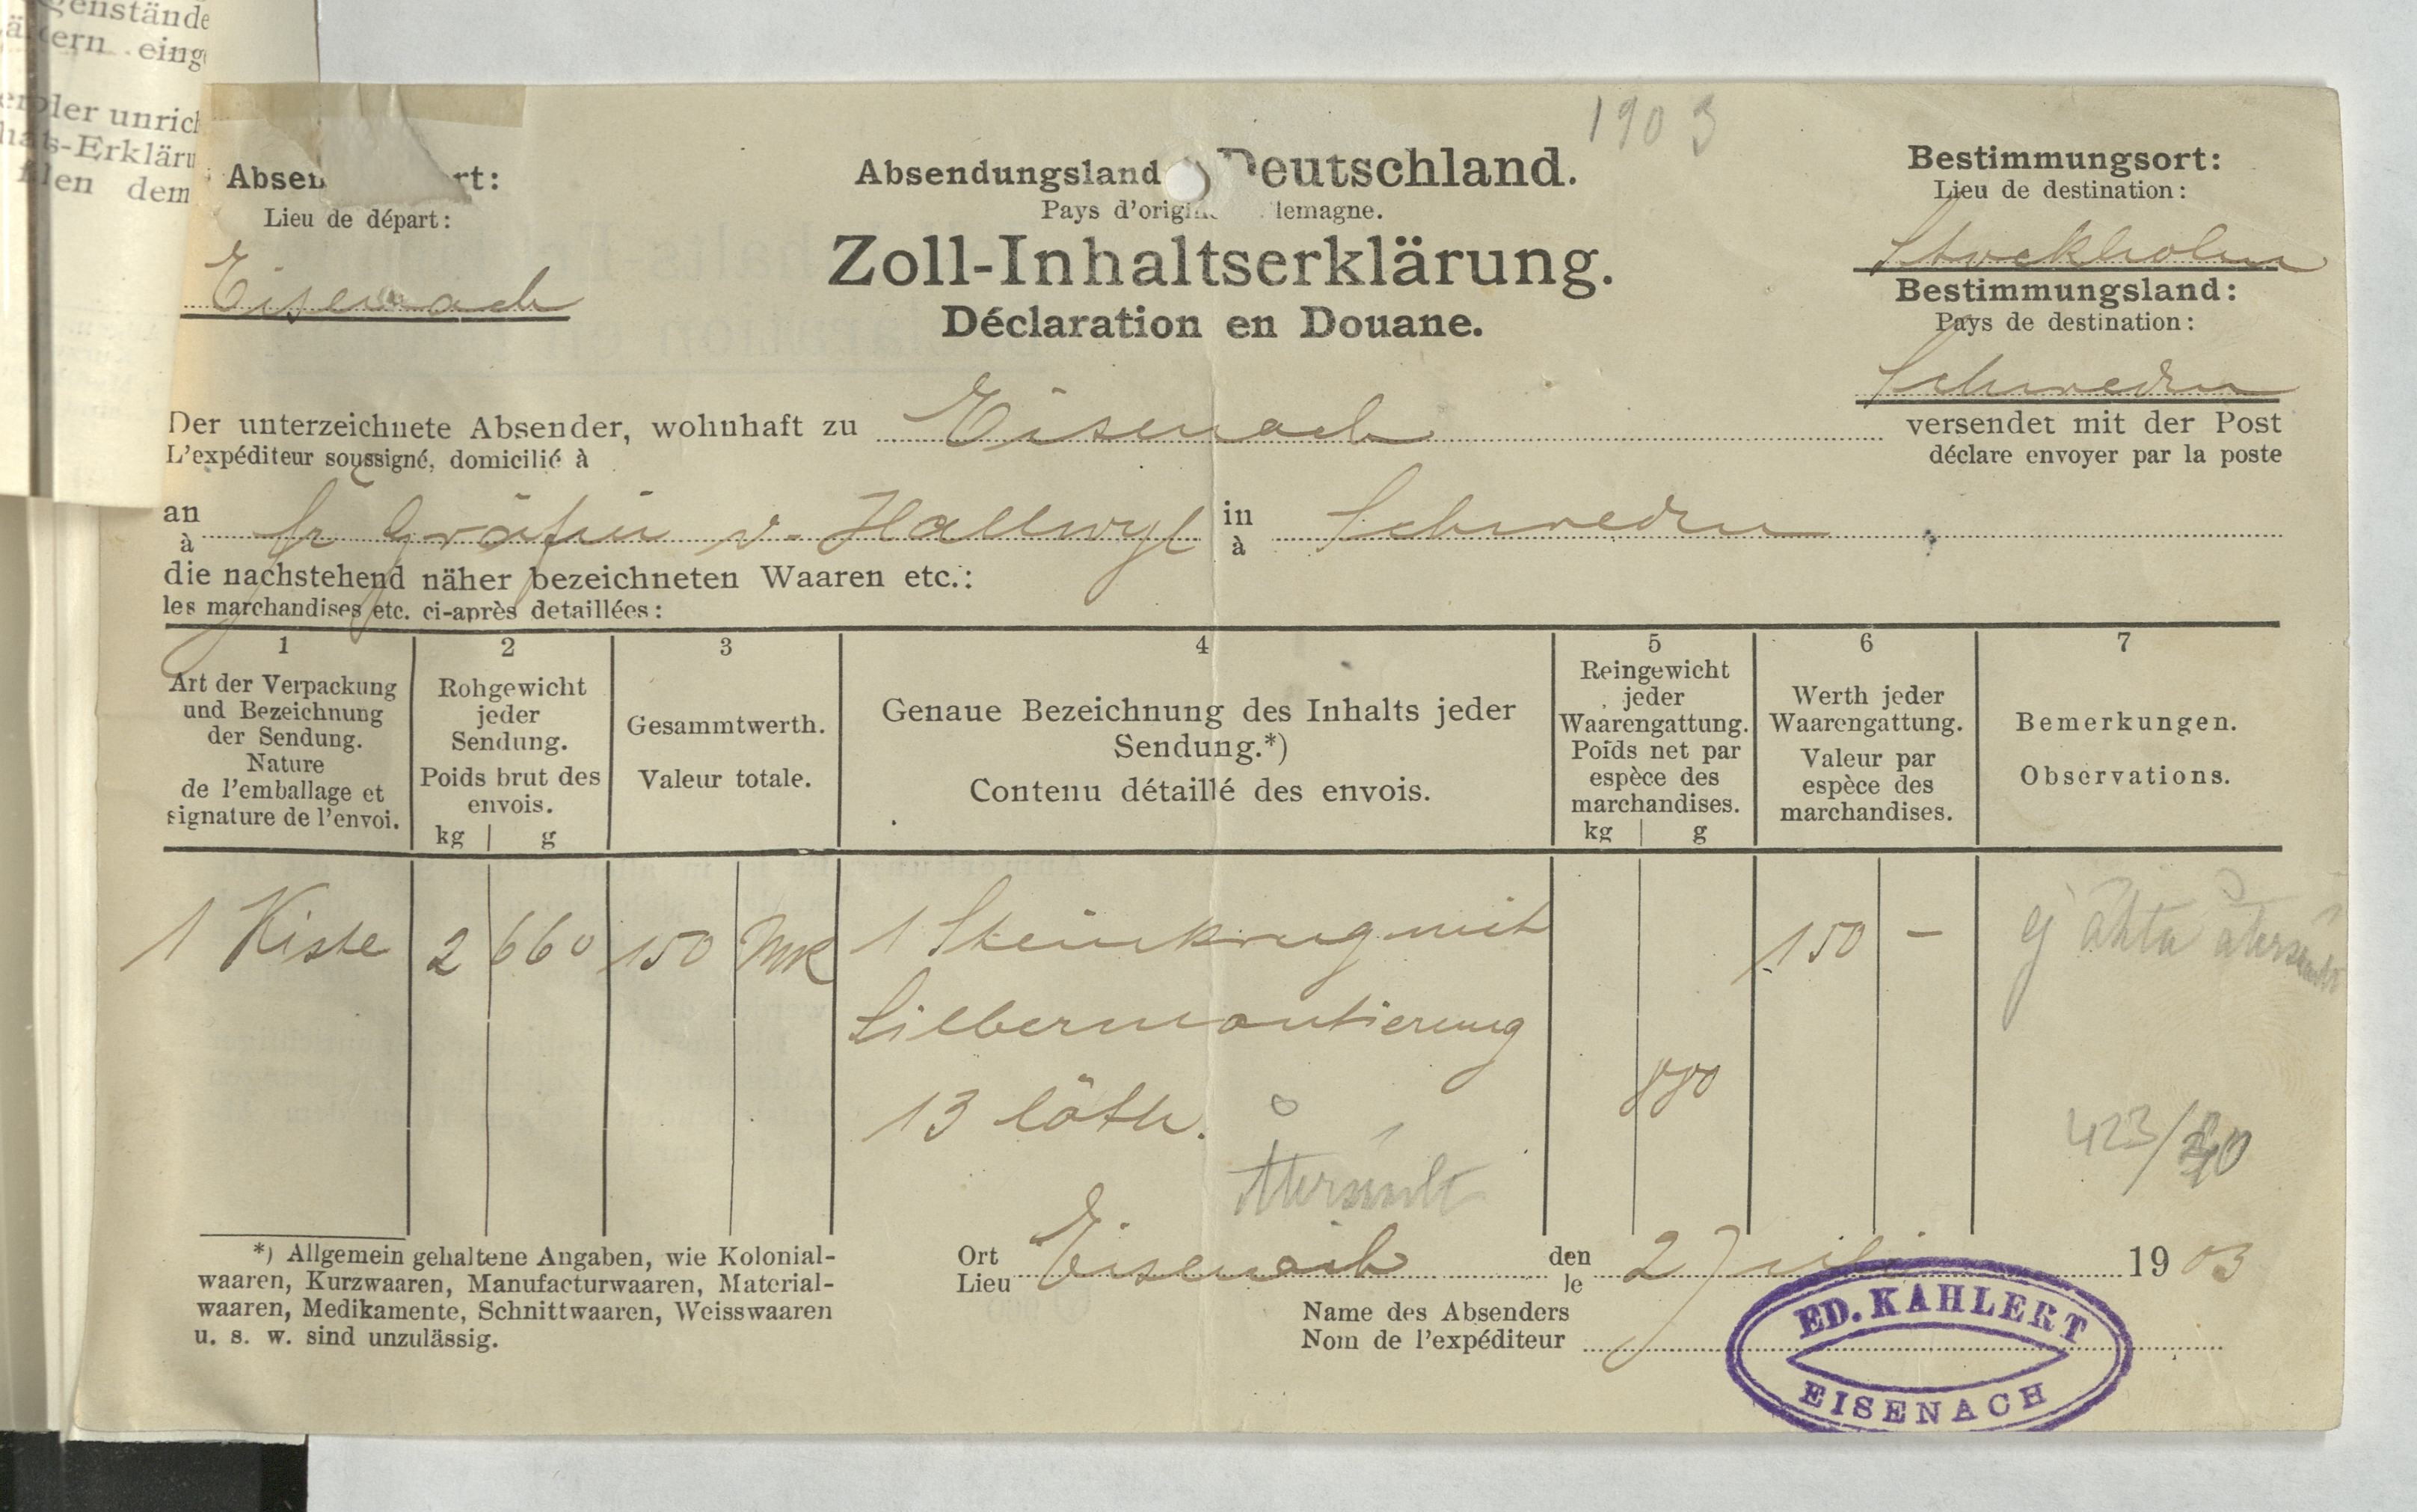 genstände
ern eing
der unrich
ts-Erkläru
dem
1903
Absen rt:
Lieu de départ:
Eisenach
Absendungsland Deutschland.
Pays d'origin lemagne.
Zoll-Inhaltserklärung.
Déclaration en Douane.
Bestimmungsort:
Lieu de destination:
Stockholm
Bestimmungsland:
Pays de destination:
Schweden
Der unterzeichnete Absender, wohnhaft zu Eisenach versendet mit der Post
L'expéditeur soussigné, domicilié à déclare envoyer par la poste
an Fr Gräfin v. Hallwyl in Schweden
à à
die nachstehend näher bezeichneten Waaren etc.:
les marchandises etc. ci-après detaillées:
1
Art der Verpackung
und Bezeichnung
der Sendung.
Nature
de l'emballage et
signature de l'envoi.
2
Rohgewicht
jeder
Sendung.
Poids brut des
envois.
kg | g
3
Gesammtwerth.
Valeur totale.
4
Genaue Bezeichnung des Inhalts jeder
Sendung.*)
Contenu détaillé des envois.
5
Reingewicht
jeder
Waarengattung.
Poids net par
espèce des
marchandises.
kg | g
6
Werth jeder
Waarengattung.
Valeur par
espèce des
marchandises.
7
Bemerkungen.
Observations.
1 Kiste 2 660 150 Mk 1 Steinkrug mit 150 – ej äkta återsändt
Silbermontierung
13 löth. 880
423/
Återsändt
*) Allgemein gehaltene Angaben, wie Kolonial-
waaren, Kurzwaaren, Manufacturwaaren, Material-
waaren, Medikamente, Schnittwaaren, Weisswaaren
u. s. w. sind unzulässig.
Ort Eisenach den 2 Juli 1903
Lieu le
Name des Absenders
Nom de l'expéditeur
ED. KAHLERT
EISENACH